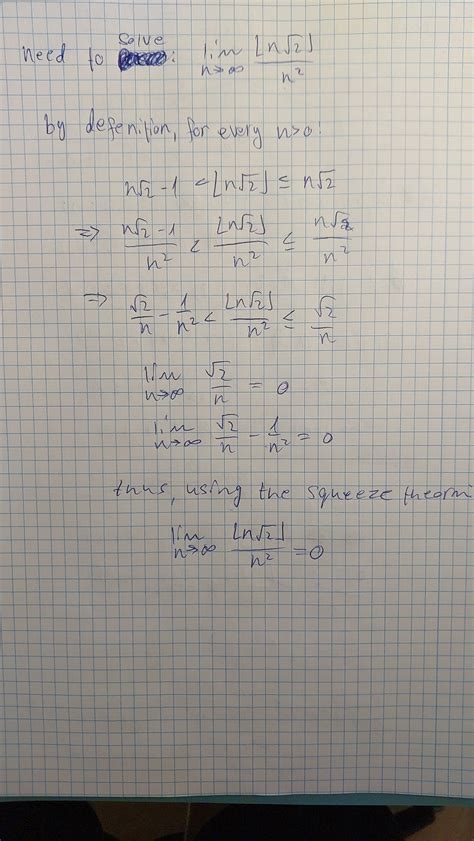 need to solve: lim n→∞ ⌊n√2⌋/n²
by defenition, for every n>0:
n√2-1 < ⌊n√2⌋ ≤ n√2
⇒ (n√2-1)/n² < ⌊n√2⌋/n² ≤ n√2/n²
⇒ √2/n - 1/n² < ⌊n√2⌋/n² ≤ √2/n
lim n→∞ √2/n = 0
lim n→∞ √2/n - 1/n² = 0
thus, using the squeeze theorm
lim n→∞ ⌊n√2⌋/n² = 0